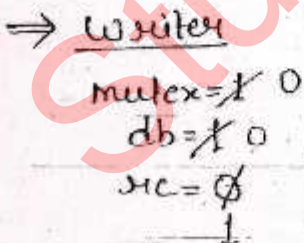 ⇒ Writer
mutex=1 0
db=1 0
rc=0
1